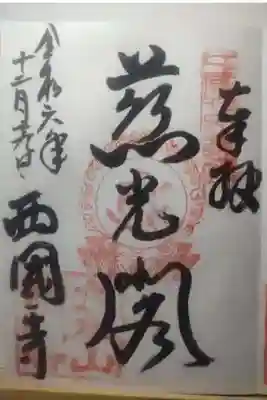 奉拝
慈光閣
令和六年
十二月吉日
西國寺